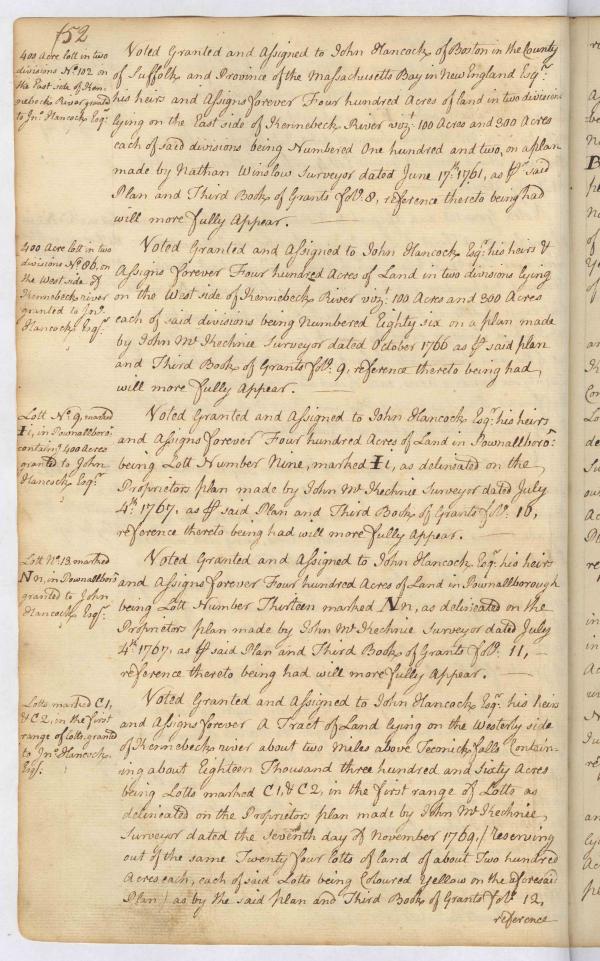 152
400 Acre lott in two
divisions No. 102 on
the East side of Ken-
nebeck River grantd
to Jno. Hancock Esqr.
Voted Granted and Assigned to John Hancock of Boston in the County
of Suffolk and Province of the Massachusetts Bay in New England Esqr.
his heirs and Assigns forever Four hundred Acres of land in two divisions
lying on the East side of Kennebeck River vizt. 100 Acres and 300 Acres
each of said divisions being Numbered One hundred and two, on a plan
made by Nathan Winslow Surveyor dated June 17th. 1761, as ⅌ said
Plan and Third Book of Grants folo. 8, reference thereto being had
will more fully Appear.
400 Acre lott in two
divisions No. 86, on
the West side of
Kennebeck river
granted to Jno.
Hancock Esqr.
Voted Granted and Assigned to John Hancock Esqr. his heirs &
Assigns forever Four hundred Acres of Land in two divisions lying
on the West side of Kennebeck River vizt. 100 Acres and 300 Acres
each of said divisions being Numbered Eighty six on a plan made
by John McKechnie Surveyor dated October 1766 as ⅌ said plan
and Third Book of Grants folo. 9, reference thereto being had,
will more fully Appear.
Lott No. 9, marked
Ii, in Pownallboro:
containg. 400 Acres
granted to John
Hancock Esqr.
Voted Granted and Assigned to John Hancock Esqr. his heirs
and Assigns forever Four hundred Acres of Land in Pownallboro:
being Lott Number Nine, marked Ii, as delineated on the
Proprietors plan made by John McKechnie Surveyor dated July
4th. 1767, as ⅌ said Plan and Third Book of Grants folo. 10,
reference thereto being had will more fully Appear.
Lott No. 13 marked
Nn, in Pownallboro
granted to John
Hancock Esqr.
Voted Granted and Assigned to John Hancock Esqr. his heirs
and Assigns forever Four hundred Acres of Land in Pownallborough
being Lott Number Thirteen marked Nn, as delineated on the
Proprietors plan made by John McKechnie Surveyor dated July
4th. 1767, as ⅌ said Plan and Third Book of Grants folo. 11,
reference thereto being had will more fully Appear.
Lotts marked C1,
& C2, in the first
range of lotts, grantd
to Jno. Hancock
Esqr.
Voted Granted and Assigned to John Hancock Esqr. his heirs
and Assigns forever A Tract of Land lying on the Westerly side
of Kennebeck river about two Miles above Teconick falls Contain-
ing about Eighteen Thousand three hundred and Sixty Acres
being Lotts marked C1, & C2, in the first range of Lotts as
delineated on the Proprietors plan made by John McKechnie,
Surveyor dated the Seventh day of November 1769, (reserving
out of the same Twenty four lotts of land of about Two hundred
Acres each, each of said Lotts being Coloured Yellow on the aforesaid
Plan) as by the said plan and Third Book of Grants folo. 12,
reference